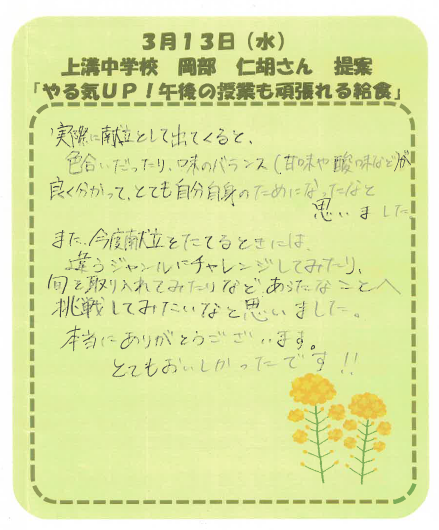 3月13日（水）
上溝中学校　岡部　仁胡さん　提案
「やる気UP！午後の授業も頑張れる給食」
実際に献立として出てくると、
色合いだったり、味のバランス（甘味や酸味など）が
良く分かって、とても自分自身のためになったなと
思いました。
また、今度献立をたてるときには、
違うジャンルにチャレンジしてみたり、
旬を取り入れてみたりなど、あらたなことへ
挑戦してみたいなと思いました。
本当にありがとうございます。
とてもおいしかったです!!